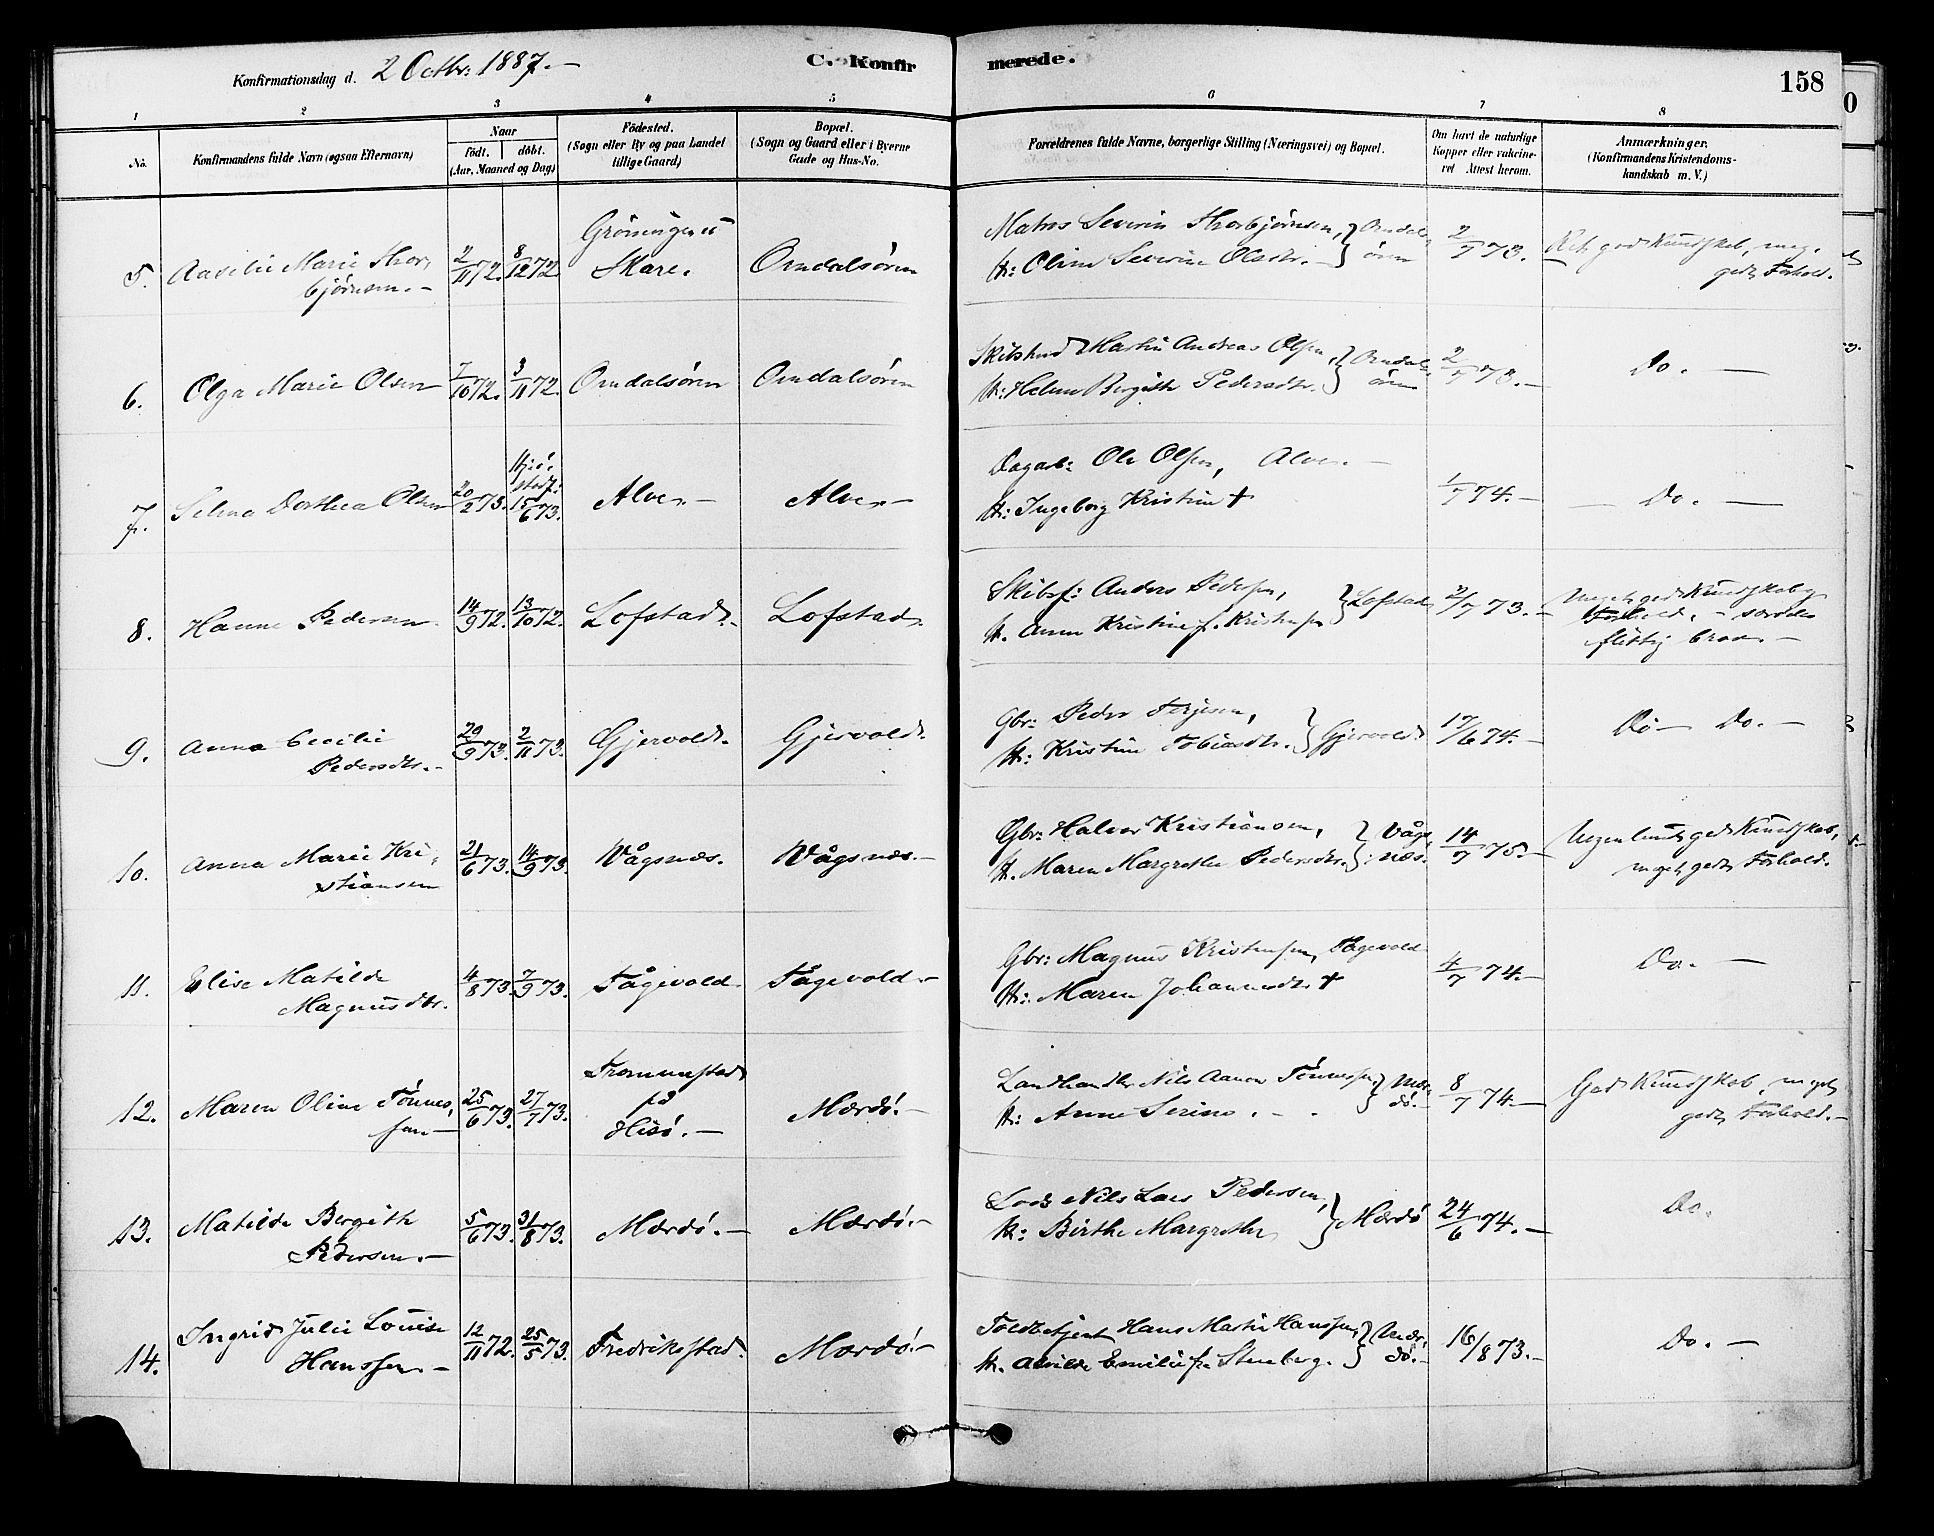 Konfirmationsdag d. 2 Octbr: 1887.–
C. Konfirmerede.
158
0
1 2 3 4 5 6 7 8
No.
Konfirmandens fulde Navn (ogsaa Efternavn)
Naar
Födt. döbt.
(Aar, Maaned og Dag)
Födested.
(Sogn eller By og paa Landet
tillige Gaard)
Bopæl.
(Sogn og Gaard eller i Byerne
Gade og Hus-No.
Forældrenes fulde Navne, borgerlige Stilling (Næringsvei) og Bopæl.
Om havt de naturlige
Kopper eller vakcine-
ret Attest herom.
Anmærkninger.
(Konfirmandens Kristendoms-
kundskab m. V.)
5. Aaselie Marie Thor,
bjørnsen.–
2/11 72. 8/12 72
Skare.
Omdalsören
Matros Severin Thorbjørnsen,
H: Oline Severine Olsdtr.
} Omdals
ören
2/7 73.
god Kundskab, meg.
godt Forhold.
6. Olga Marie Olsen
7/10 72. 3/11 72.
Omdalsören
Omdalsören
Martin Andreas Olsen,
H: Helene Bergithe Pedersdtr.
} Omdals
ören
2/7 73.–
Do.–
7. Selma Dorthea Olsen
20/2 73. 15/6 73.
Alve.–
Alve.–
Dagarb: Ole Olsen, Alve.–
H: Ingeborg Kristine †
1/7 74.–
– Do.–
8. Hanne Pedersen.
14/9 72. 13/10 72.
Lofstad.–
Lofstad.
Skibsf: Anders Pedersen,
H. Anne Kristine f. Kristensen
} Lofstad
2/7 73.–
Meget god Kundskab og
Forhold, – særdeles
flittig brav.–
9. Anna Cecilie
Pedersdtr.–
29/9 73. 2/11 73.
Gjervold.
Gjervold.
Gbr: Peder Terjesen,
H: Kristine Tobiasdtr.
} Gjervold
17/6 74.–
Do– Do.–
10. Anna Marie Kri,
stiansen
21/6 73. 14/9 73.
Vågsnæs.
Vågsnæs.–
Gbr: Halvor Kristiansen,
H. Maren Margrethe Pedersdtr.
} Vågs,
næs.
14/7 75.–
Kundskab,
meget godt Forhold.
11. Elise Matilde
Magnusdtr.
4/8 73. 7/9 73.
Tågevold.
Tågevold.–
Gbr: Magnus Kristensen, Tågevold
H: Maren Johannesdtr. †
4/7 74.–
Do.–
12. Maren Oline Tönnes,
sen–
25/6 73. 27/7 73.
på
Hisö.–
Mærdö.–
Landhandler Nils Aanon Tönnessen
H: Anne Serine.–
} Mær,
dö.–
8/7 74.–
God Kundskab, meget
godt Forhold.–
13. Matilde Bergithe
Pedersen.–
5/6 73. 31/8 73.
Mærdö.–
Mærdö.–
Lods Nils Lars Pedersen,
H: Birthe Margrethe
} Mærdö
24/6 74.–
Do.
14. Ingrid Julie Louise
Hanssen.–
12/11 72. 25/5 73.
Fredrikstad.
Mærdö.–
Toldbetjent Hans Martin Hanssen,
H. Alvilde Emilie f. Stenberg.
} Mær,
dö.–
16/8 73.–
Do.–